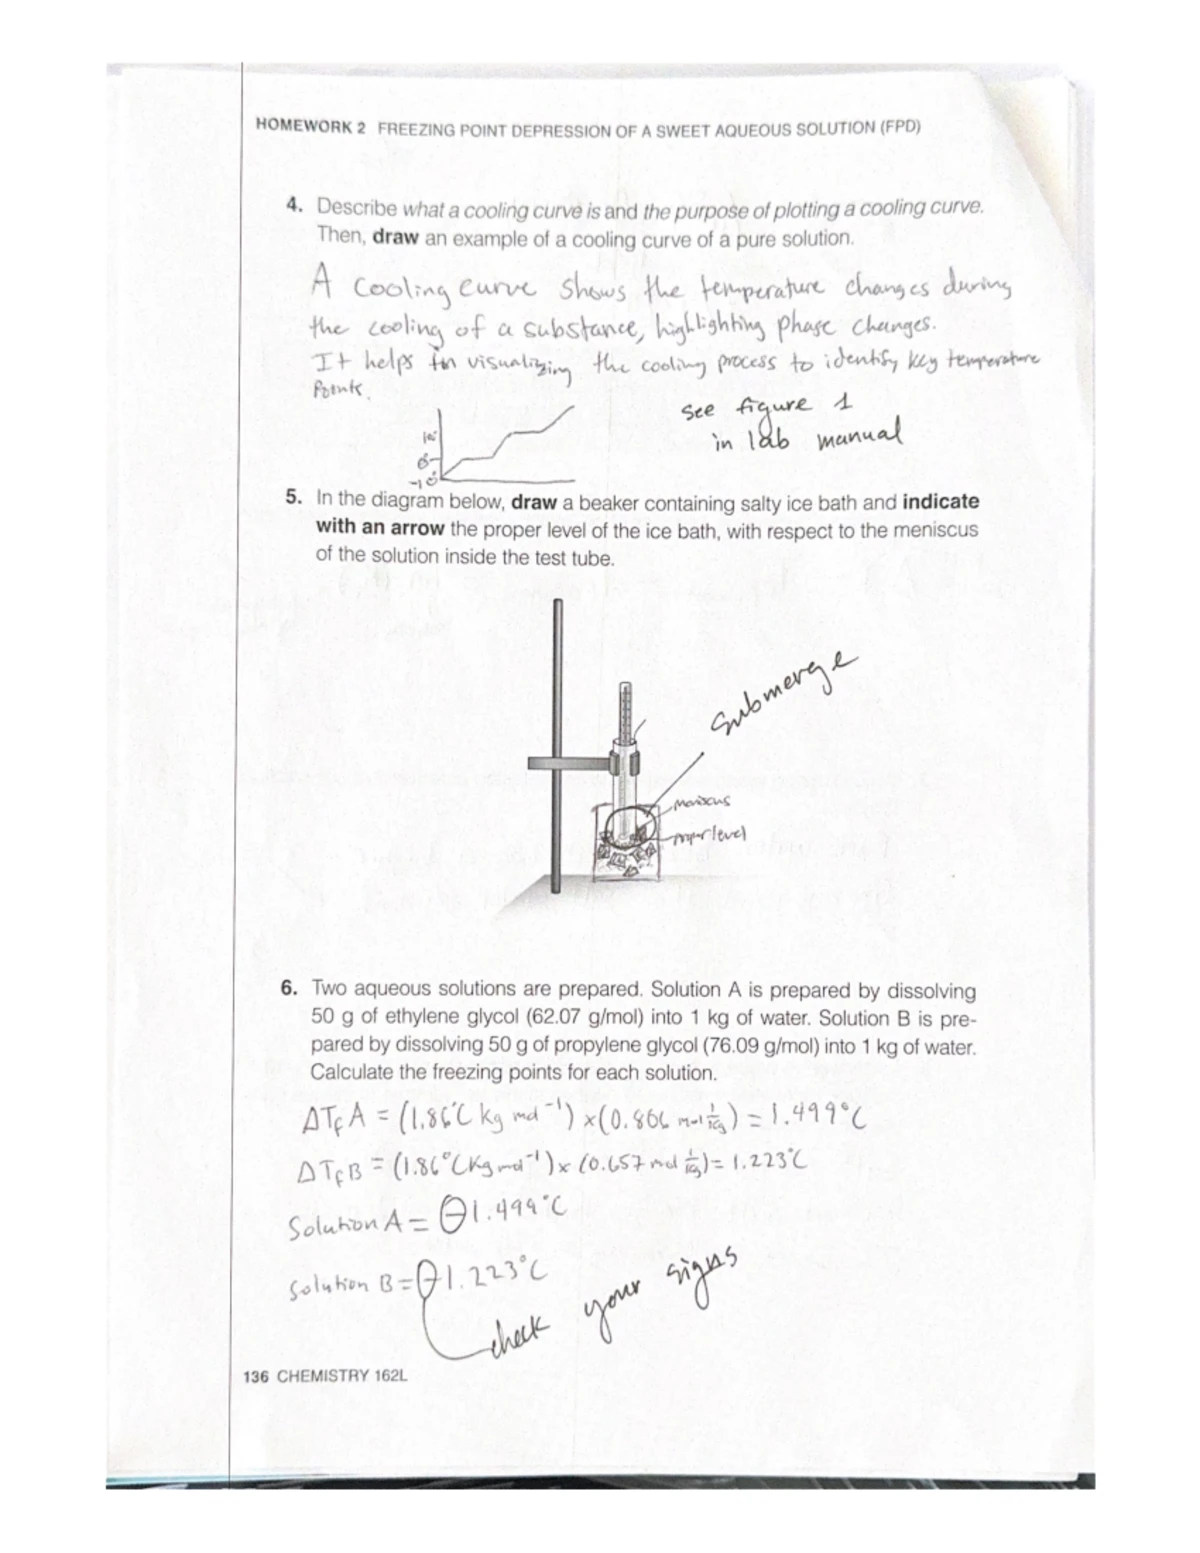 HOMEWORK 2 FREEZING POINT DEPRESSION OF A SWEET AQUEOUS SOLUTION (FPD)
4. Describe what a cooling curve is and the purpose of plotting a cooling curve.
Then, draw an example of a cooling curve of a pure solution.
A cooling curve shows the temperature changes during
the cooling of a substance, highlighting phase changes.
It helps in visualizing the cooling process to identify key temperature
Points.
see figure 1
in lab manual
5. In the diagram below, draw a beaker containing salty ice bath and indicate
with an arrow the proper level of the ice bath, with respect to the meniscus
of the solution inside the test tube.
Submerge
meniscus
proper level
6. Two aqueous solutions are prepared. Solution A is prepared by dissolving
50 g of ethylene glycol (62.07 g/mol) into 1 kg of water. Solution B is pre-
pared by dissolving 50 g of propylene glycol (76.09 g/mol) into 1 kg of water.
Calculate the freezing points for each solution.
ΔTf A = (1.86°C kg mol⁻¹) x (0.806 mol 1/kg) = 1.499°C
ΔTf B = (1.86°C kg mol⁻¹) x (0.657 mol 1/kg) = 1.223°C
Solution A = -1.499°C
Solution B = -1.223°C
check your signs
136 CHEMISTRY 162L